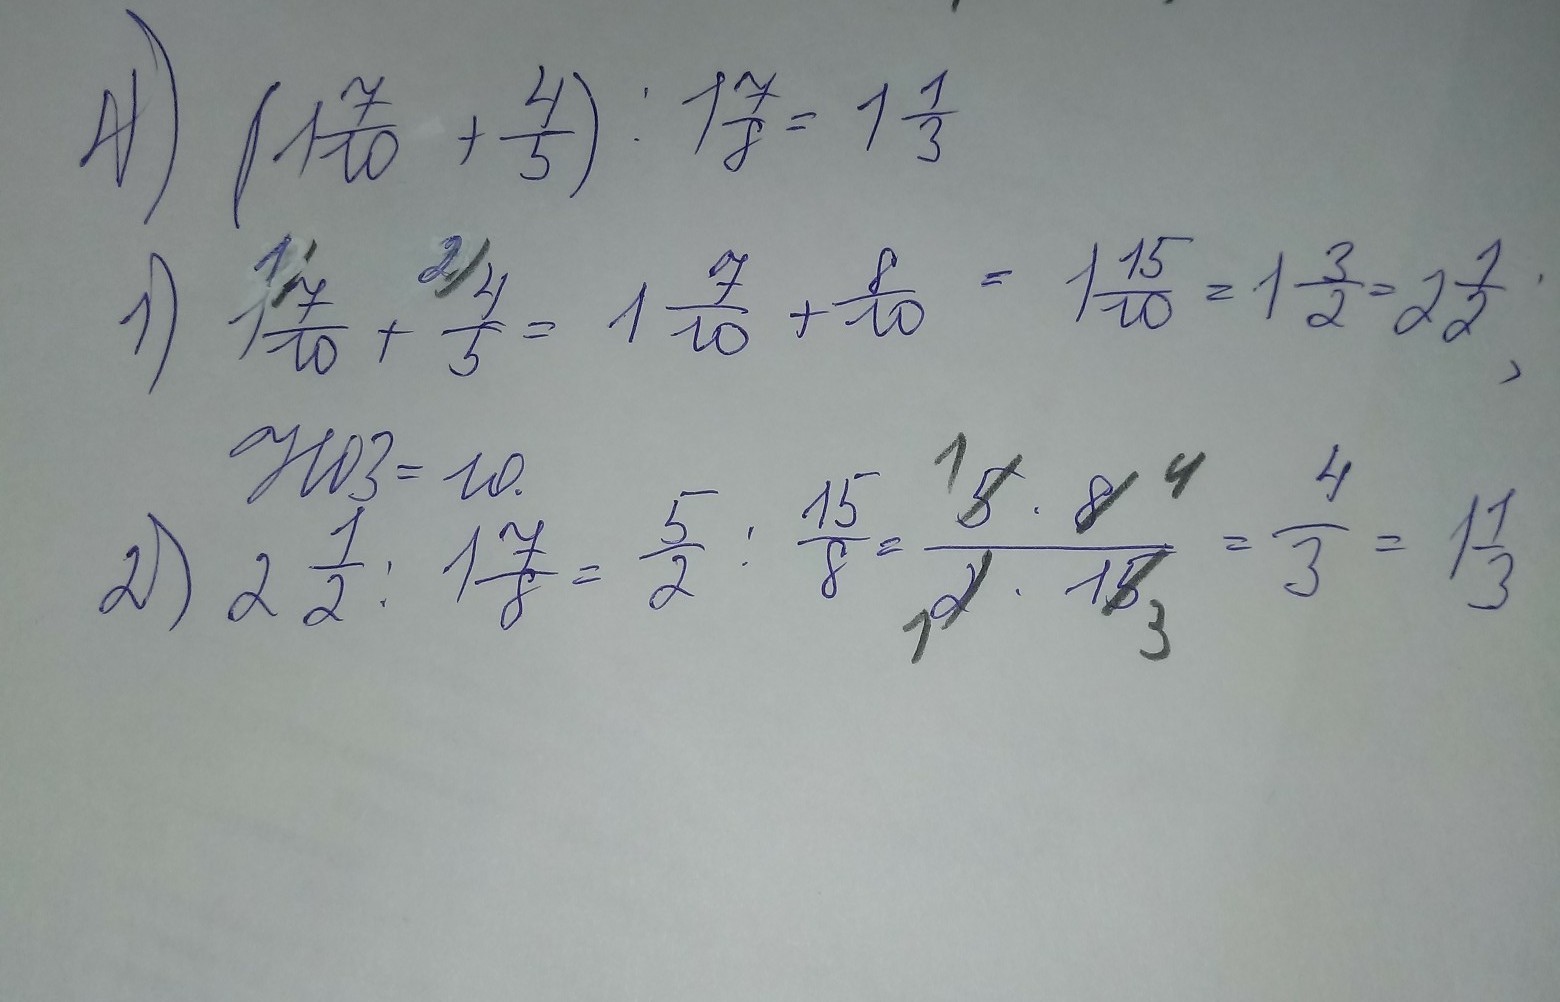 А) (1 7/10 + 4/5) : 1 7/8 = 1 1/3
1) 1 7/10 1/ + 4/5 2/ = 1 7/10 + 8/10 = 1 15/10 = 1 3/2 = 2 1/2 ;
НОЗ = 10.
2) 2 1/2 : 1 7/8 = 5/2 : 15/8 = 5 1 · 8 4 / 2 1 · 15 3 = 4/3 = 1 1/3